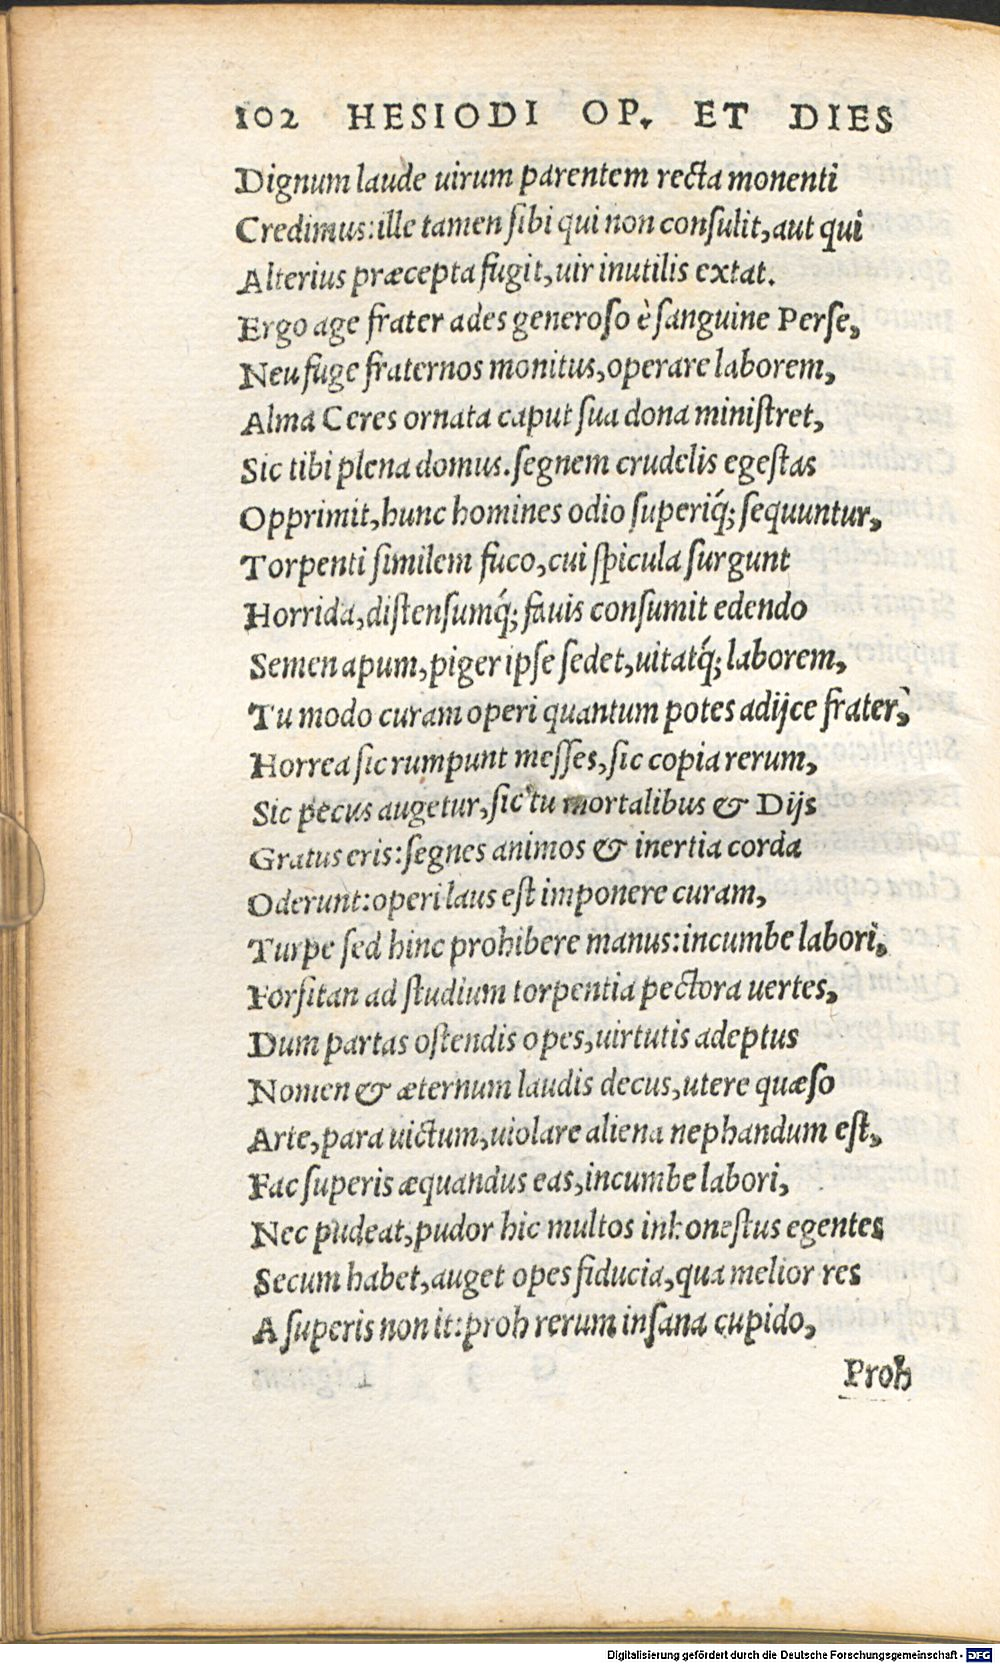 102 HESIODI OP. ET DIES
Dignum laude uirum parentem recta monenti
Credimus: ille tamen sibi qui non consulit, aut qui
Alterius præcepta fugit, uir inutilis extat.
Ergo age frater ades generoso è sanguine Perse,
Neu fuge fraternos monitus, operare laborem,
Alma Ceres ornata caput sua dona ministret,
Sic tibi plena domus. segnem crudelis egestas
Opprimit, hunc homines odio superiq́; sequuntur,
Torpenti similem fuco, cui spicula surgunt
Horrida, distensumq́; fauis consumit edendo
Semen apum, piger ipse sedet, uitatq́; laborem,
Tu modo curam operi quantum potes adijce frater,
Horrea sic rumpunt messes, sic copia rerum,
Sic pecus augetur, sic tu mortalibus & Dijs
Gratus eris: segnes animos & inertia corda
Oderunt: operi laus est imponere curam,
Turpe sed hinc prohibere manus: incumbe labori,
Forsitan ad studium torpentia pectora uertes,
Dum partas ostendis opes, uirtutis adeptus
Nomen & æternum laudis decus, utere quæso
Arte, para uictum, uiolare aliena nephandum est,
Fac superis æquandus eas, incumbe labori,
Nec pudeat, pudor hic multos inhonestus egentes
Secum habet, auget opes fiducia, qua melior res
A superis non it: proh rerum insana cupido,
Proh
Digitalisierung gefördert durch die Deutsche Forschungsgemeinschaft - DFG